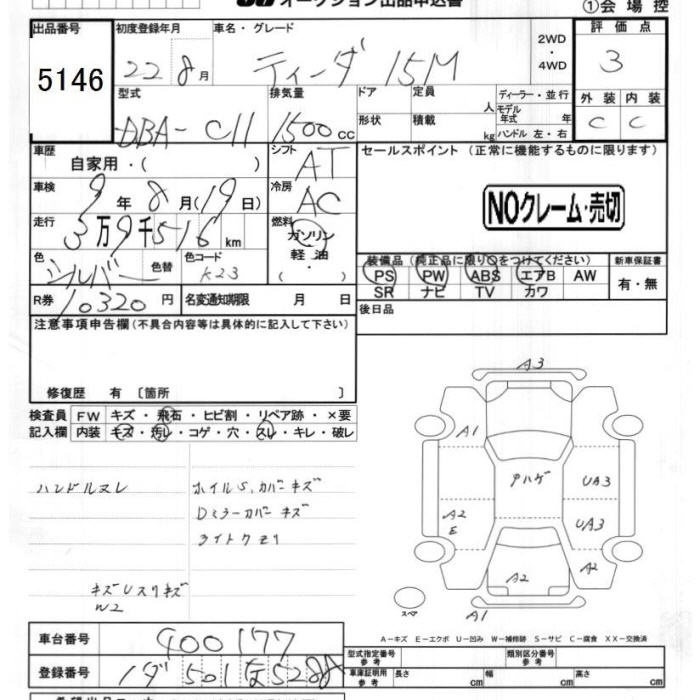 オークション出品申込書
①会場控
出品番号 5146
初度登録年月 22 8月
車名・グレード ティーダ 15M
2WD・4WD
評価点 3
外装 C 内装 C
型式 DBA-C11
排気量 1500cc
ドア 形状
定員 人 積載 kg
ディーラー・並行
モデル年式 年
ハンドル 左・右
車歴 自家用・( )
シフト AT
セールスポイント (正常に機能するものに限ります)
車検 9年8月(19日)
冷房 AC
NOクレーム・売切
走行 3万9千516km
燃料 ガソリン・軽油・( )
色 シルバー 色替
色コード K23
装備品 (純正品に限り○をつけてください)
新車保証書 有・無
PS PW ABS エアB AW
SR ナビ TV カワ
R券 10320円
名変通知期限 月 日
後日品
注意事項申告欄(不具合内容等は具体的に記入して下さい)
修復歴 有 〔箇所 〕
検査員記入欄
FW キズ・飛石・ヒビ割・リペア跡・×要
内装 キズ・汚レ・コゲ・穴・スレ・キレ・破レ
ハンドルスレ
ホイルS,カバーキズ
Dミラーカバーキズ
ライトクモリ
W2
A3
A1
Pハゲ
UA3
A2 E
UA3
A2
A2
スペ
A1
A-キズ E-エクボ U-凹み W-補修跡 S-サビ C-腐食 XX-交換済
車台番号 400177
登録番号
型式指定番号 参考
類別区分番号 参考
車庫証明用 参考 長さ cm 幅 cm 高さ cm